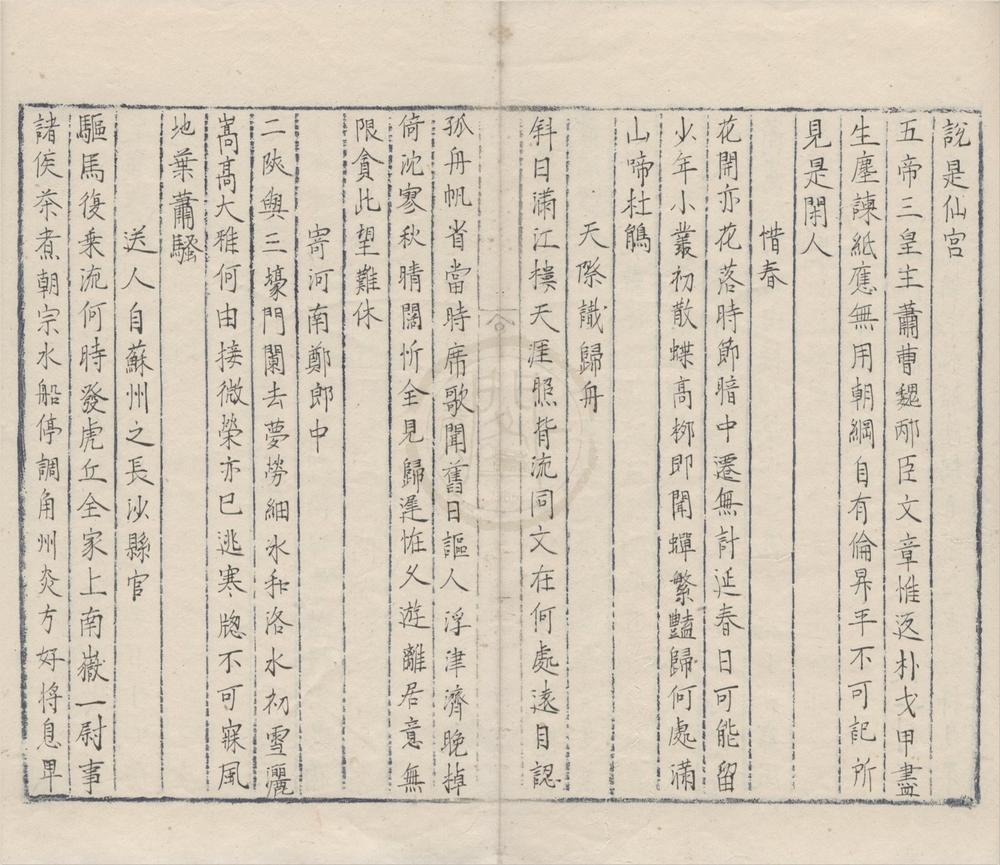 說是仙宫
五帝三皇主蕭曹魏邴臣文章惟返朴戈甲盡
生塵諫紙應無用朝綱自有倫昇平不可記所
見是閑人
惜春
花開亦花落時節暗中遷無計延春日可能留
少年小叢初散蝶高柳即聞蟬繁豔歸何處滿
山啼杜鵑
天際識歸舟
斜日滿江樓天涯照背流同文在何處遠目認
孤舟帆省當時席歌聞舊日謳人浮津濟晚棹
倚沈寥秋晴闊忻全見歸遲恠乆遊離居意無
限貪此望難休
寄河南鄭郎中
二陝與三壕門闌去夢勞細氷和洛水初雪灑
嵩高大雅何由接微榮亦已逃寒牕不可寐風
地葉蕭騷
送人自蘇州之長沙縣官
驅馬復乗流何時發虎丘全家上南嶽一尉事
諸侯茶煮朝宗水船停調角州炎方好將息卑